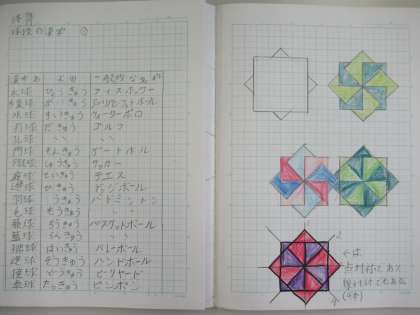 体育
球技の漢字
漢字 よみ 一般的な名前
氷球 ひょうきゅう アイスホッケー
水球 すいきゅう ウォーターポロ
打球 だきゅう ゴルフ
孔球
門球 もんきゅう ゲートボール
蹴球 しゅうきゅう サッカー
庭球 ていきゅう テニス
避球 ひきゅう ドッジボール
羽球 うきゅう バドミントン
毛球 もうきゅう
籠球 ろうきゅう バスケットボール
籃球
排球 はいきゅう バレーボール
送球 そうきゅう ハンドボール
撞球 どうきゅう ビリヤード
卓球 たっきゅう ピンポン
点対称で
線対称でもある
(4本)